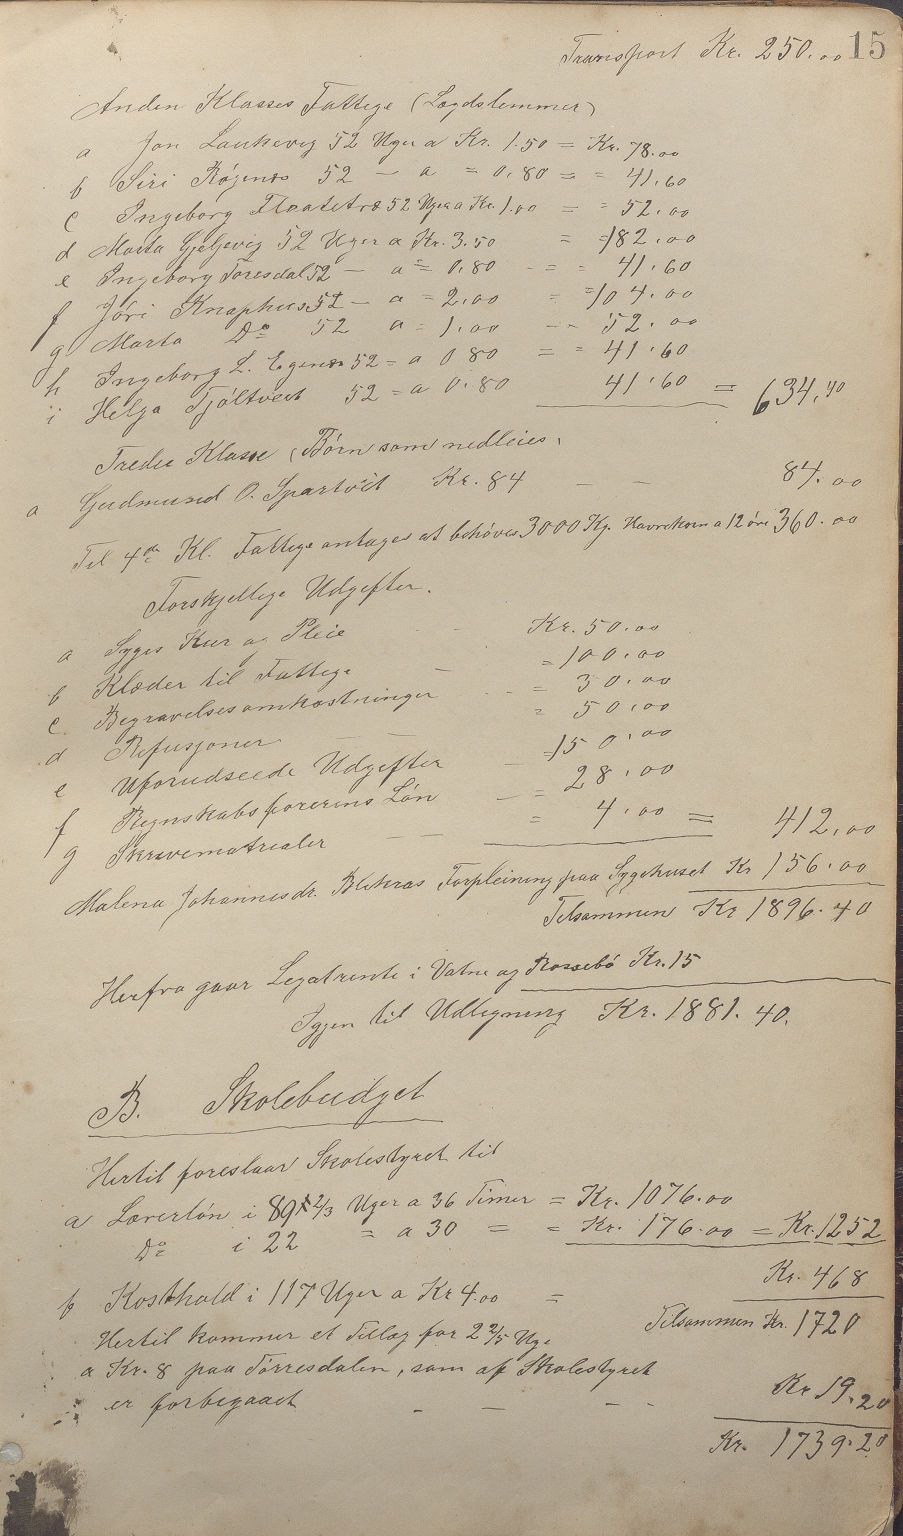 Transport Kr. 250.00 15
Anden Klasses Fattige (Lægdslemmer)
a Jon Laukevig 52 Uger a Kr. 1.50 = Kr. 78.00
b Siri Røgenæs 52 — a = 0.80 = = 41.60
c Ingeborg Flaatetræ 52 Uger a Kr. 1.00 = = 52.00
d Marta Gjeljevig 52 Uger a Kr. 3.50 = =182.00
e Ingeborg Toresdal 52 — a = 0.80 - = = 41.60
f Jóri Knaphus 52 — a = 2.00 = =104.00
g Marta Do 52 a = 1.00 - - 52.00
h Ingeborg L. Egenæs 52 = a 0 80 = = 41.60
i Helga Tjóltveit 52 = a 0.80 41.60 = 634.40
Tredie Klasse (Børn som nedleies.
a Gudmund O. Spartveit Kr. 84 — — 84.00
Til 4de Kl. Fattige antages at behøves 3000 Kg. Havrekorn a 12 øre 360.00
Forskjellige Udgifter.
a Syges Kur og Pleie - - Kr. 50.00
b Klæder til Fattige — =100.00
c Begravelsesomkostninger - - = 30.00
d Refusjoner — — = 50.00
e Uforudseede Udgifter — =150.00
f Regnskabsførerens Løn — = 28.00
g Skrivematrealer — — = 4.00 = 412.00
Malena Johannesdr. Forpleining paa Sygehuset Kr 156.00
Tilsammen Kr 1896.40
Herfra gaar Legatrente i Vatne og Rossebó Kr. 15
Igjen til Udligning Kr. 1881.40.
B. Skolebudget
Hertil foreslaar Skolestyret til
a Lærerløn i 89 2/3 Uger a 36 Timer = Kr. 1076.00
Do i 22 = a 30 = = Kr. 176.00 = Kr. 1252
b Kosthold i 117 Uger a Kr 4.00 = Kr. 468
Tilsammen Kr. 1720
Hertil kommer et Tillæg for 2 2/5 Uge
a Kr. 8 paa Tórresdalen, som af Skolestyret
er forbigaaet - — — - - Kr 19.20
Kr. 1739.20